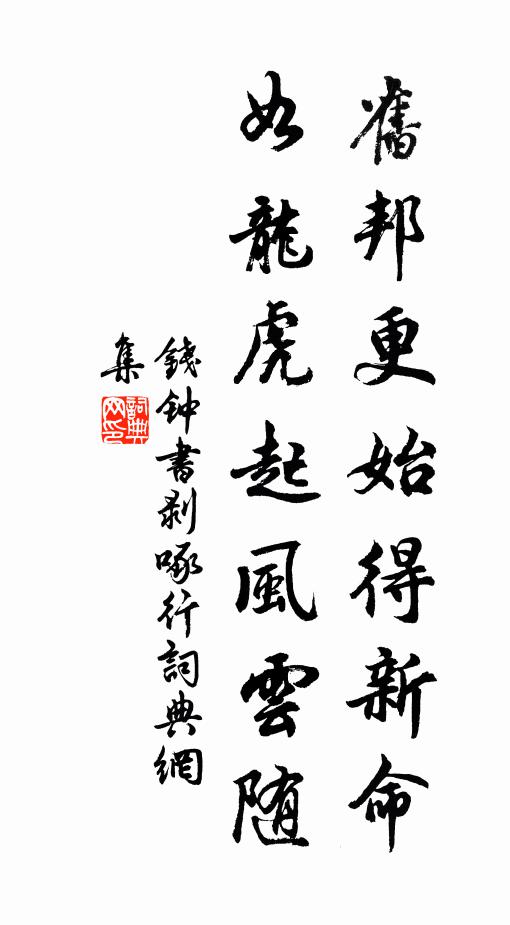 舊邦更始得新命
如龍虎起風雲随
錢钟書剥啄行詞典網
集
詞典网印